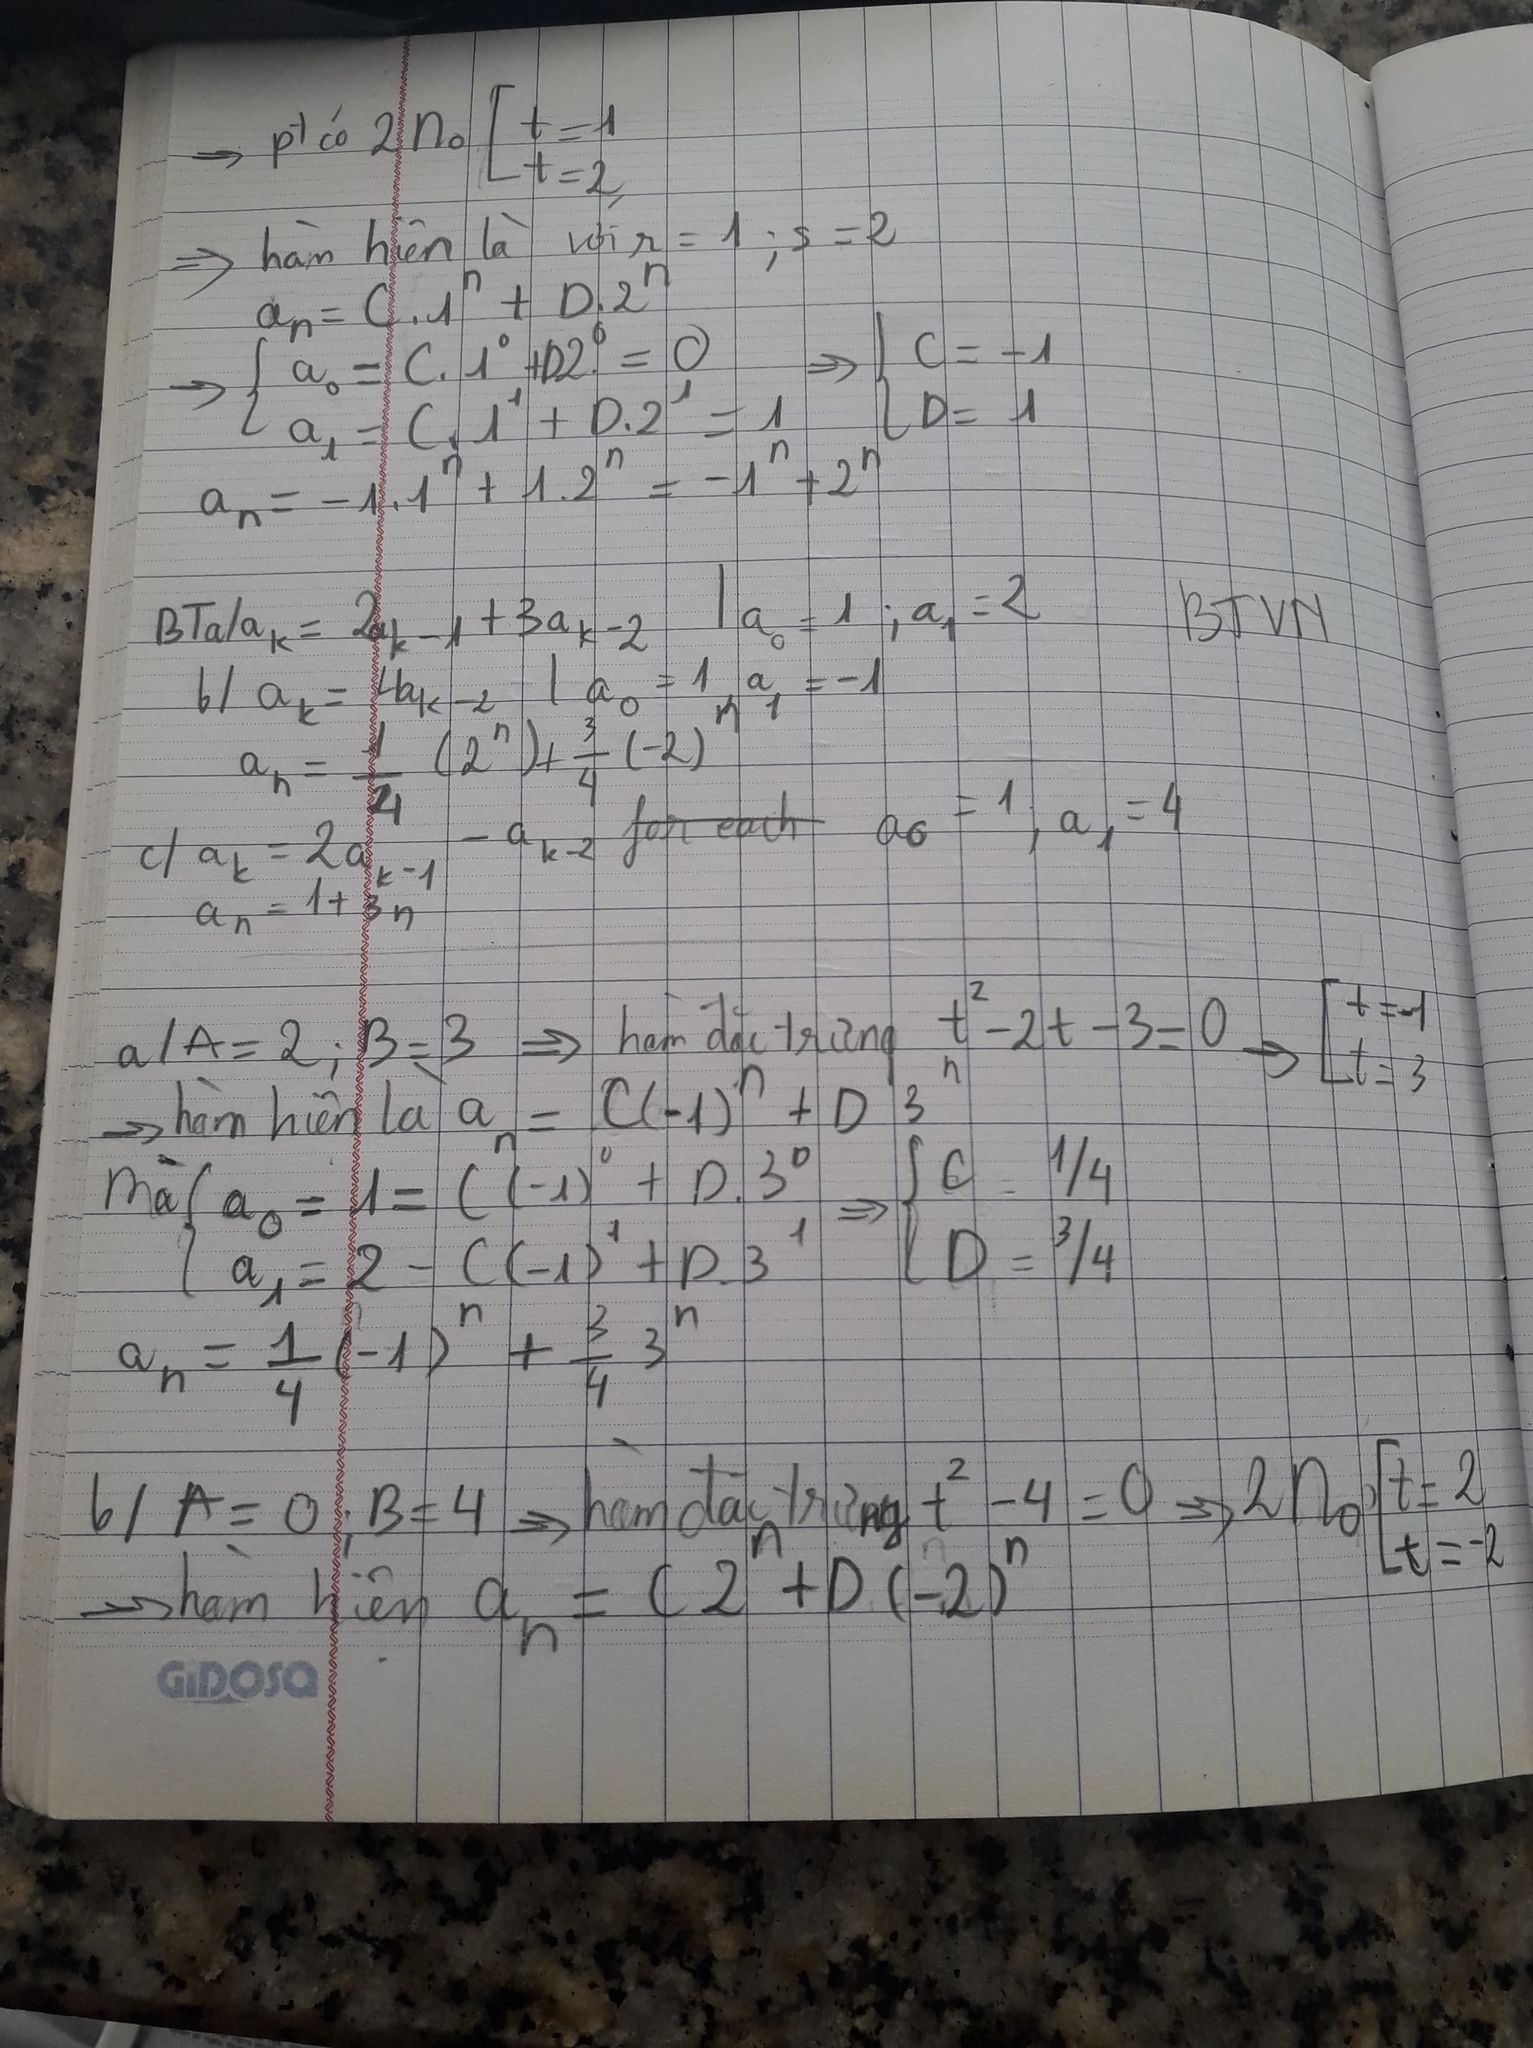 => pt có 2 no [ t = 1
t = 2
=> hàm hiện là với r = 1 ; s = 2
aₙ = C.1ⁿ + D.2ⁿ
→ { a₀ = C.1⁰ + D2.⁰ = 0 => { C = -1
a₁ = C.1¹ + D.2¹ = 1 D = 1
aₙ = -1.1ⁿ + 1.2ⁿ = -1ⁿ + 2ⁿ
BTa/ aₖ = 2aₖ₋₁ + 3aₖ₋₂ | a₀ = 1 ; a₁ = 2 BTVN
b/ aₖ = 4aₖ₋₂ | a₀ = 1, a₁ = -1
aₙ = 1/4 (2ⁿ) + 3/4 (-2)ⁿ
c/ aₖ = 2aₖ₋₁ - aₖ₋₂ for each a₀ = 1, a₁ = 4
aₙ = 1 + 3n
a/ A = 2 ; B = 3 => hàm đặc trưng t² - 2t - 3 = 0 => [ t = -1
t = 3
=> hàm hiện là aₙ = C(-1)ⁿ + D 3ⁿ
Mà { a₀ = 1 = C(-1)⁰ + D.3⁰ => { C = 1/4
a₁ = 2 = C(-1)¹ + D.3¹ D = 3/4
aₙ = 1/4 (-1)ⁿ + 3/4 3ⁿ
b/ A = 0 ; B = 4 => hàm đặc trưng t² - 4 = 0 => 2 no [ t = 2
t = -2
=> hàm hiện aₙ = C 2ⁿ + D (-2)ⁿ
GIDOSA